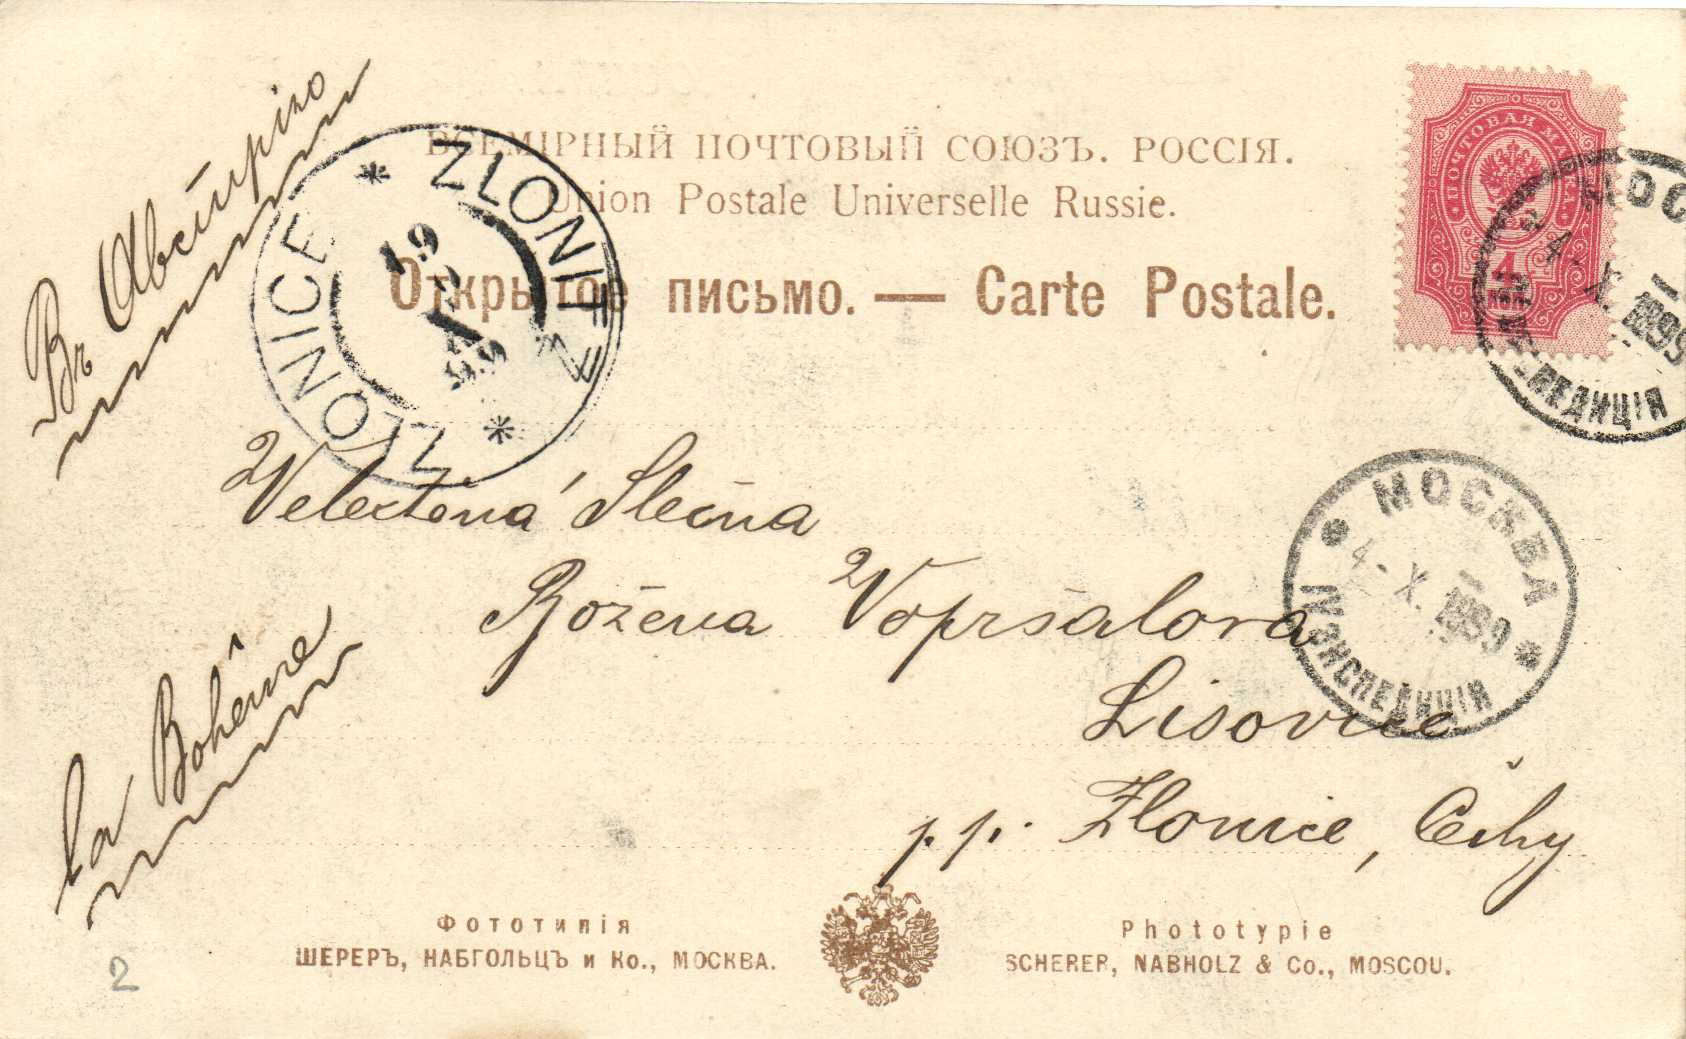 ВСЕМІРНЫЙ ПОЧТОВЫЙ СОЮЗЪ. РОССІЯ.
Union Postale Universelle Russie.
Открытое письмо. — Carte Postale.
Въ Австрію
ZLONITZ
* ZLONICE *
19
X
99
ПОЧТОВАЯ МАРКА
4
МОС
4-X. 1899
ЭКСПЕДИЦІЯ
Velectěná Slečna
Božena Vopršalova
Lisovice
p.p. Zlonice, Čechy
МОСКВА
4-X. 1899
ЭКСПЕДИЦІЯ
La Bohême
Фототипія
ШЕРЕРЪ, НАБГОЛЬЦЪ и Ко., МОСКВА.
Phototypie
SCHERER, NABHOLZ & Co., MOSCOU.
2